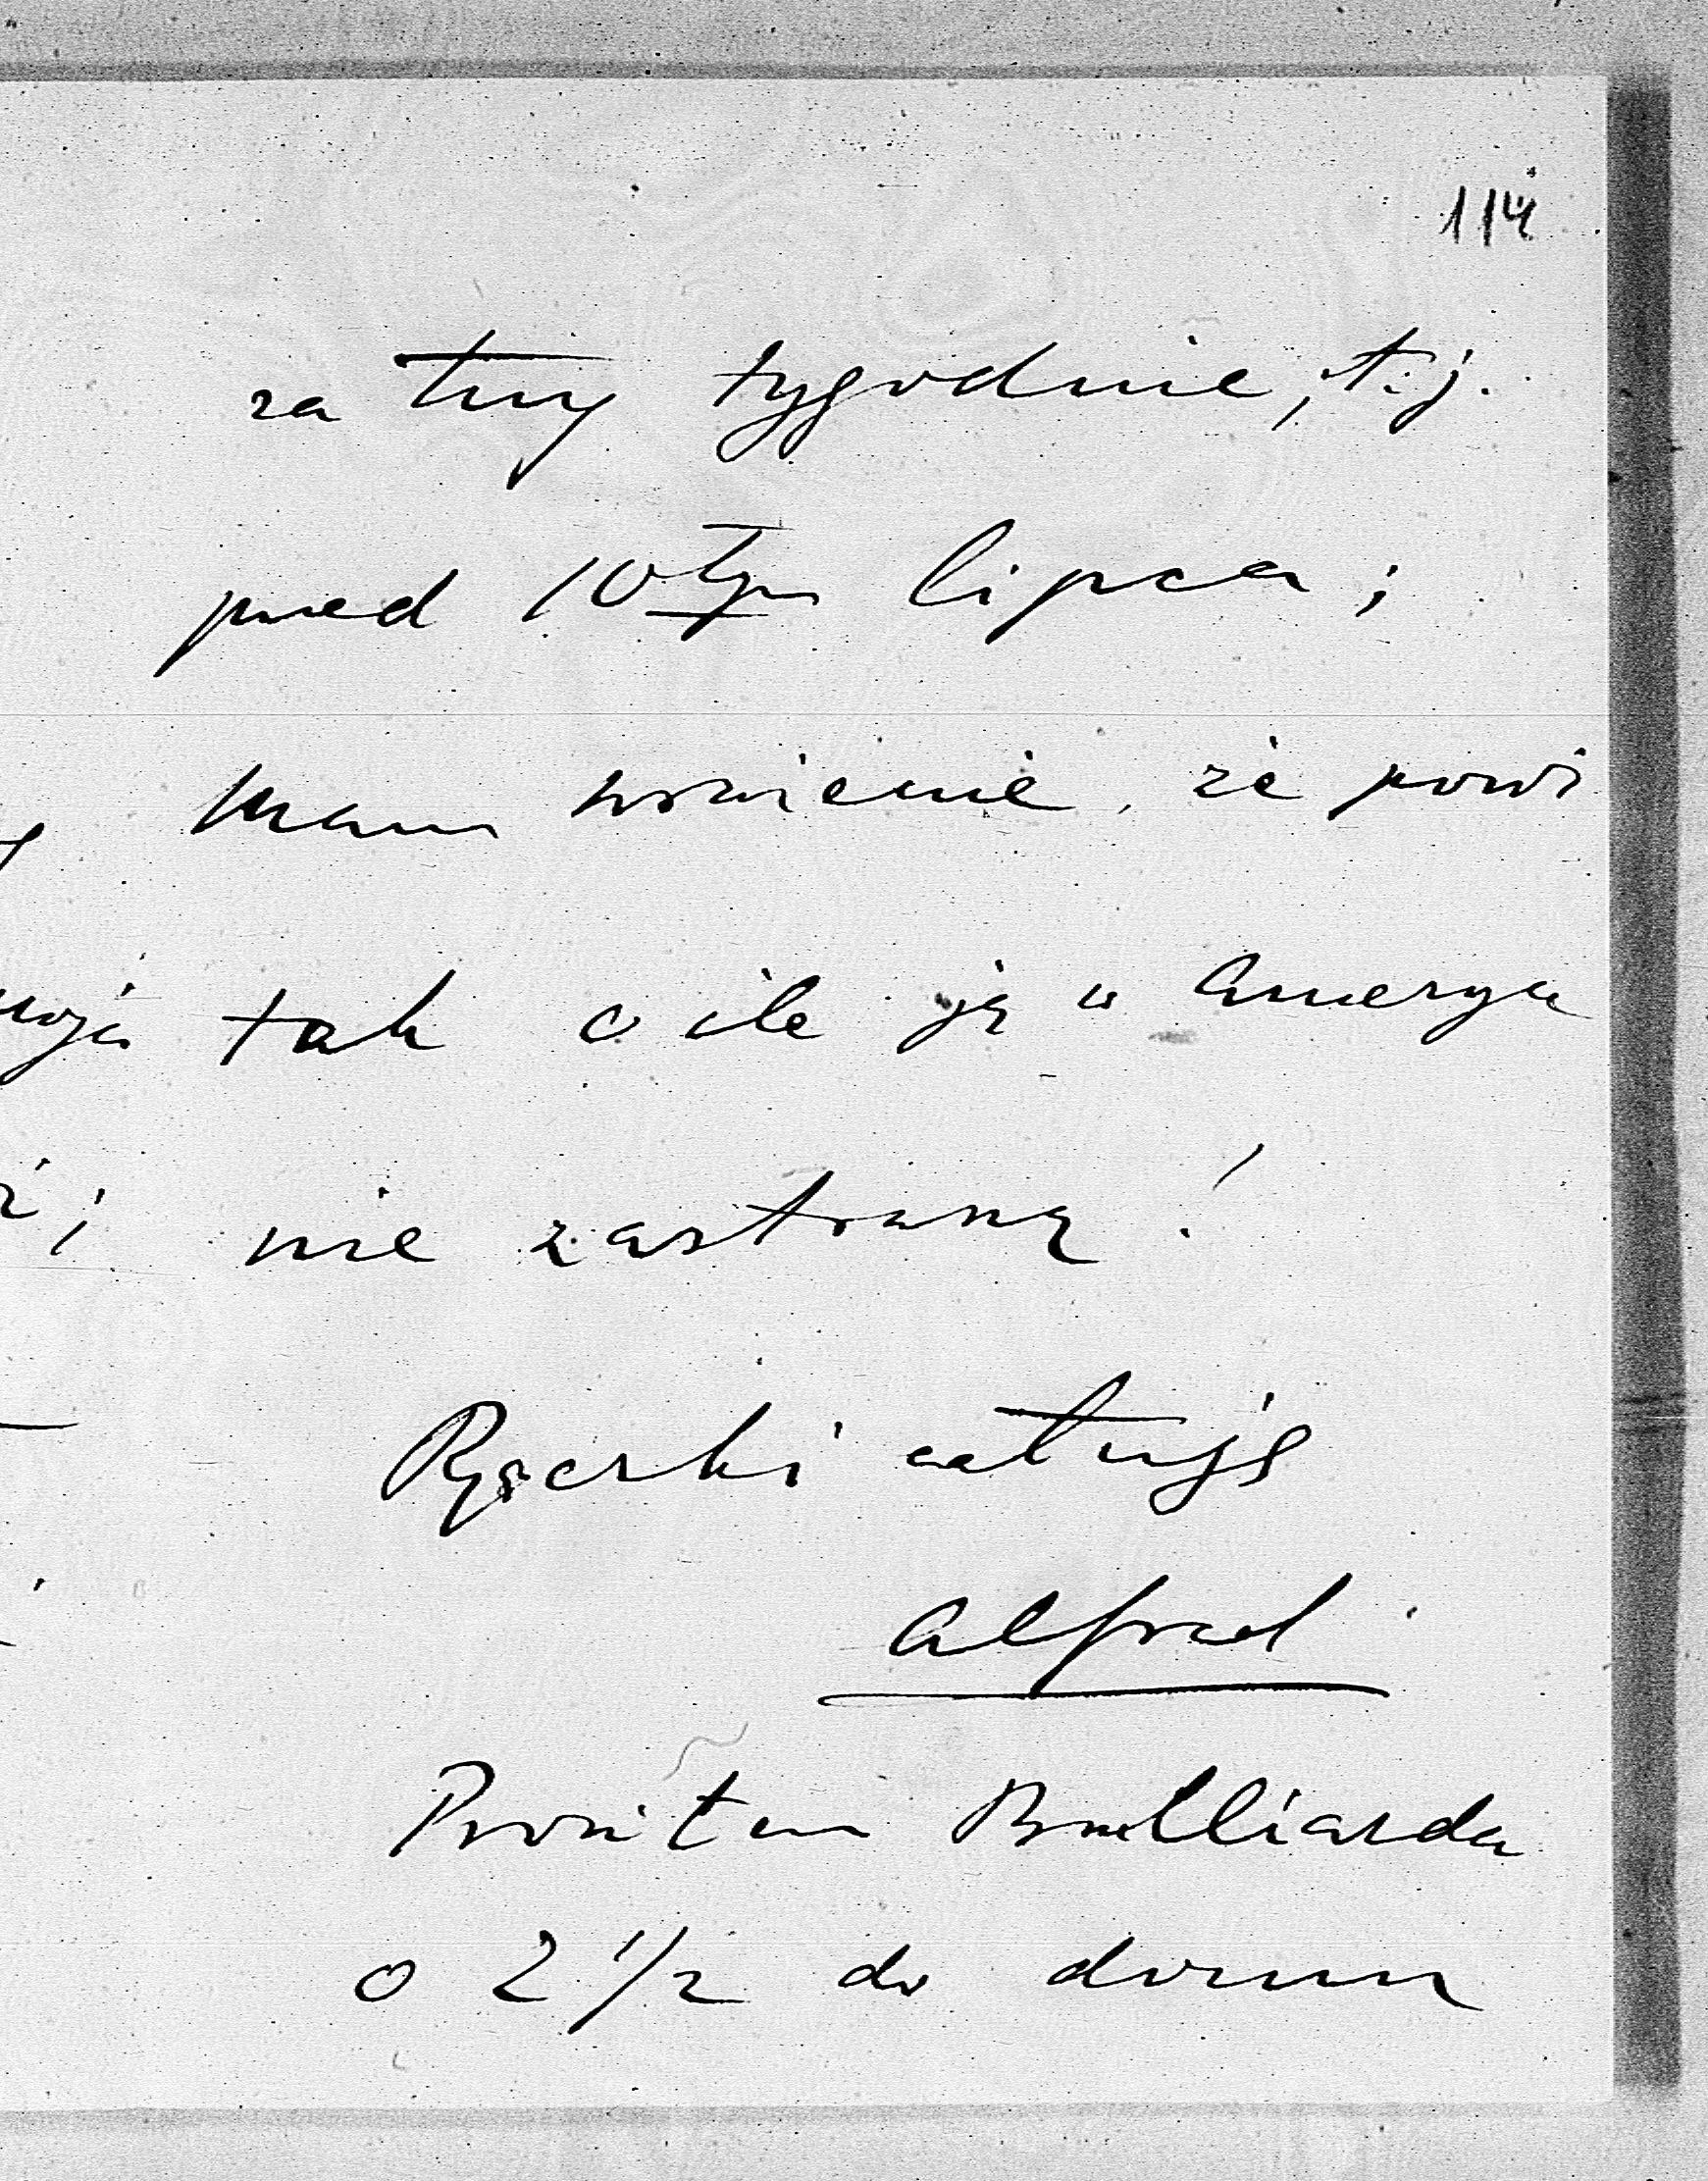 114
za trzy tygodnie, t.j.
przed 10tym lipca;
Mam wrażenie, że
tak o ile ją w Ameryce
nie zastranę!
Rączki całuję
Alfred
Prositem Brulliarda
o 2 1/2 do domu